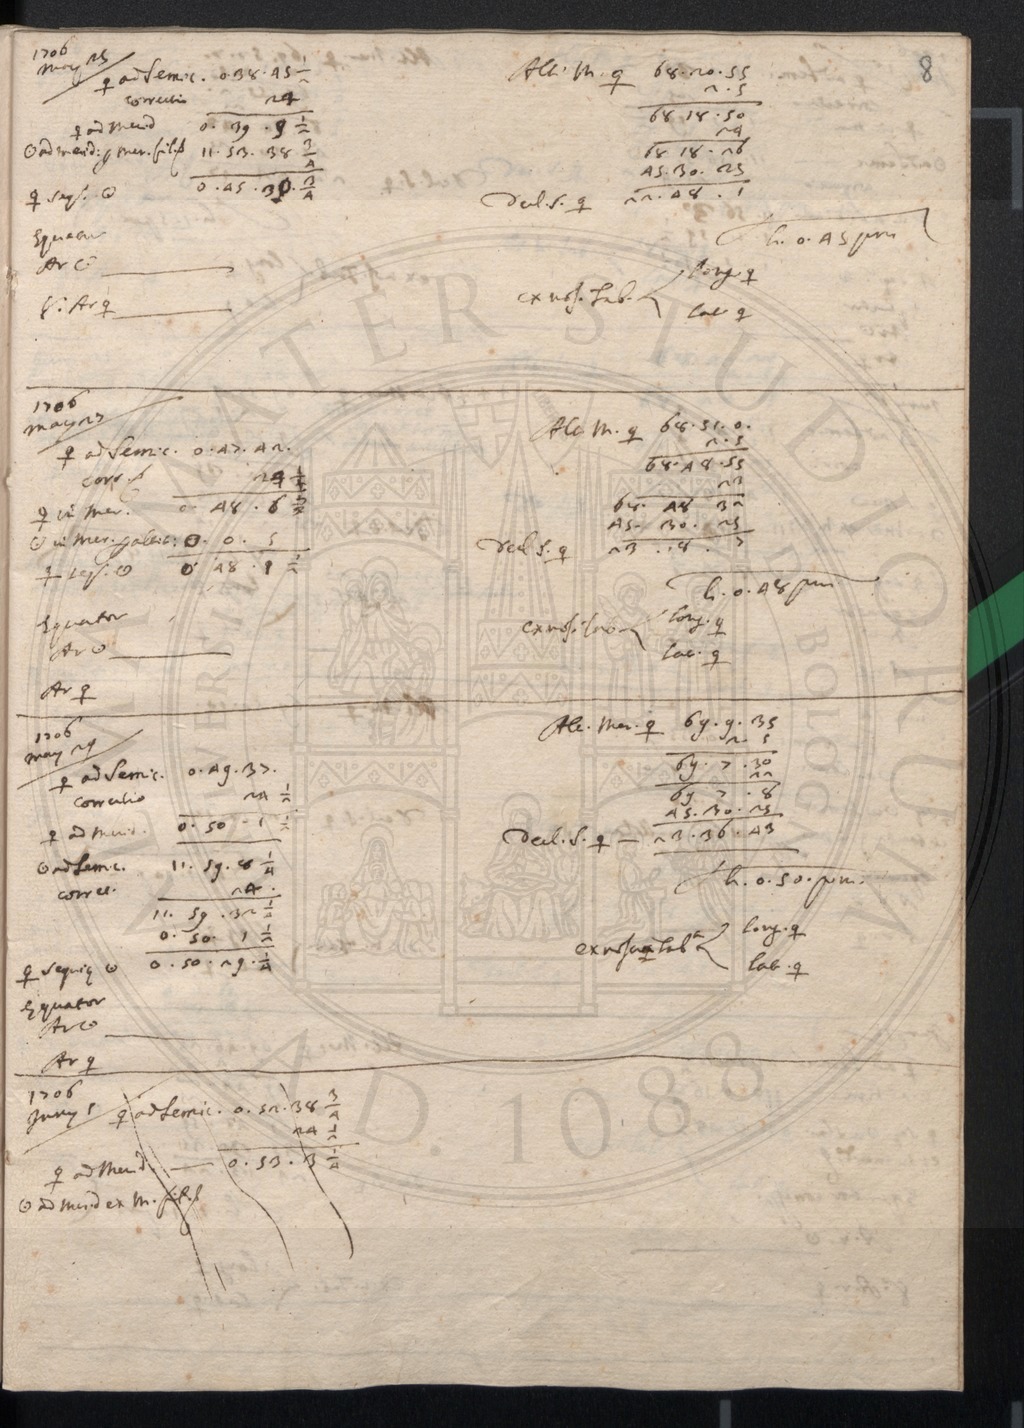 8
1706
May 25
♀ ad Semic. 0.38.45 1/2
correctio 24
♀ ad Merid 0.39.9 1/2
☉ ad merid. p mer. fil. 11.53.38 3/4
♀ seq. ☉ 0.45.30 3/4
Equator
Ar ☉
Ar ♀
Alt. M. ♀ 68.20.55
2.5
68.18.50
24
68.18.26
45.30.25
Decl. S. ♀ 22.48.1
h. 0.45 pm
ex nost. Tab. long. ♀
lat. ♀
1706
May 27
♀ ad Semic. 0.47.42.
corr. 24 1/2
♀ in Mer. 0.48.6 1/2
☉ in Mer. 0.0.5
♀ seq. ☉ 0.48.1 1/2
Equator
Ar ☉
Ar ♀
Alt. M. ♀ 68.51.0.
2.5
68.48.55
23
68.48.32
45.30.25
Decl. S. ♀ 23.18.7
h. 0.48 pm
ex nost. long. ♀
lat. ♀
1706
May 29
♀ ad Semic. 0.49.37.
correctio 24 1/2
♀ ad Merid. 0.50.1 1/2
☉ ad Semic. 11.59.8 1/4
correc. 24.
11.59.32 1/4
0.50.1 1/2
♀ sequiq ☉ 0.50.29 1/4
Equator
Ar ☉
Ar ♀
Alt. Mer. ♀ 69.9.35
2.5
69.7.30
22
69.7.8
45.30.25
Decl. S. ♀ 23.36.43
h. 0.50. pm.
long. ♀
lat. ♀
1706
Juny 1
♀ ad Semic. 0.52.38 3/4
24 1/2
♀ ad Merid. 0.53.3 1/4
☉ ad Merid ex M. fil.
ALMA MATER STUDIORUM
UNIVERSITÀ DI BOLOGNA
A.D. 1088